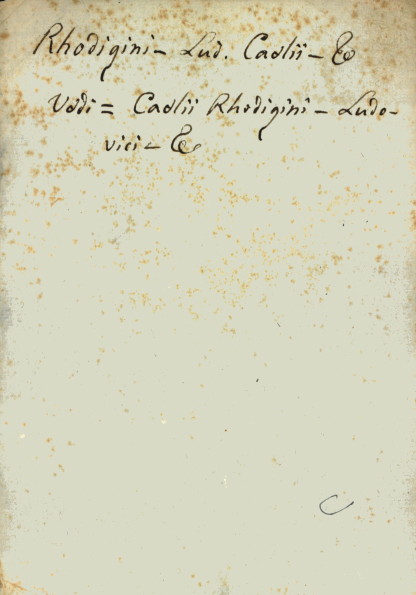 Rhodigini - Lud. Caelii - &
Vedi = Caelii Rhodigini - Ludo-
vici - &